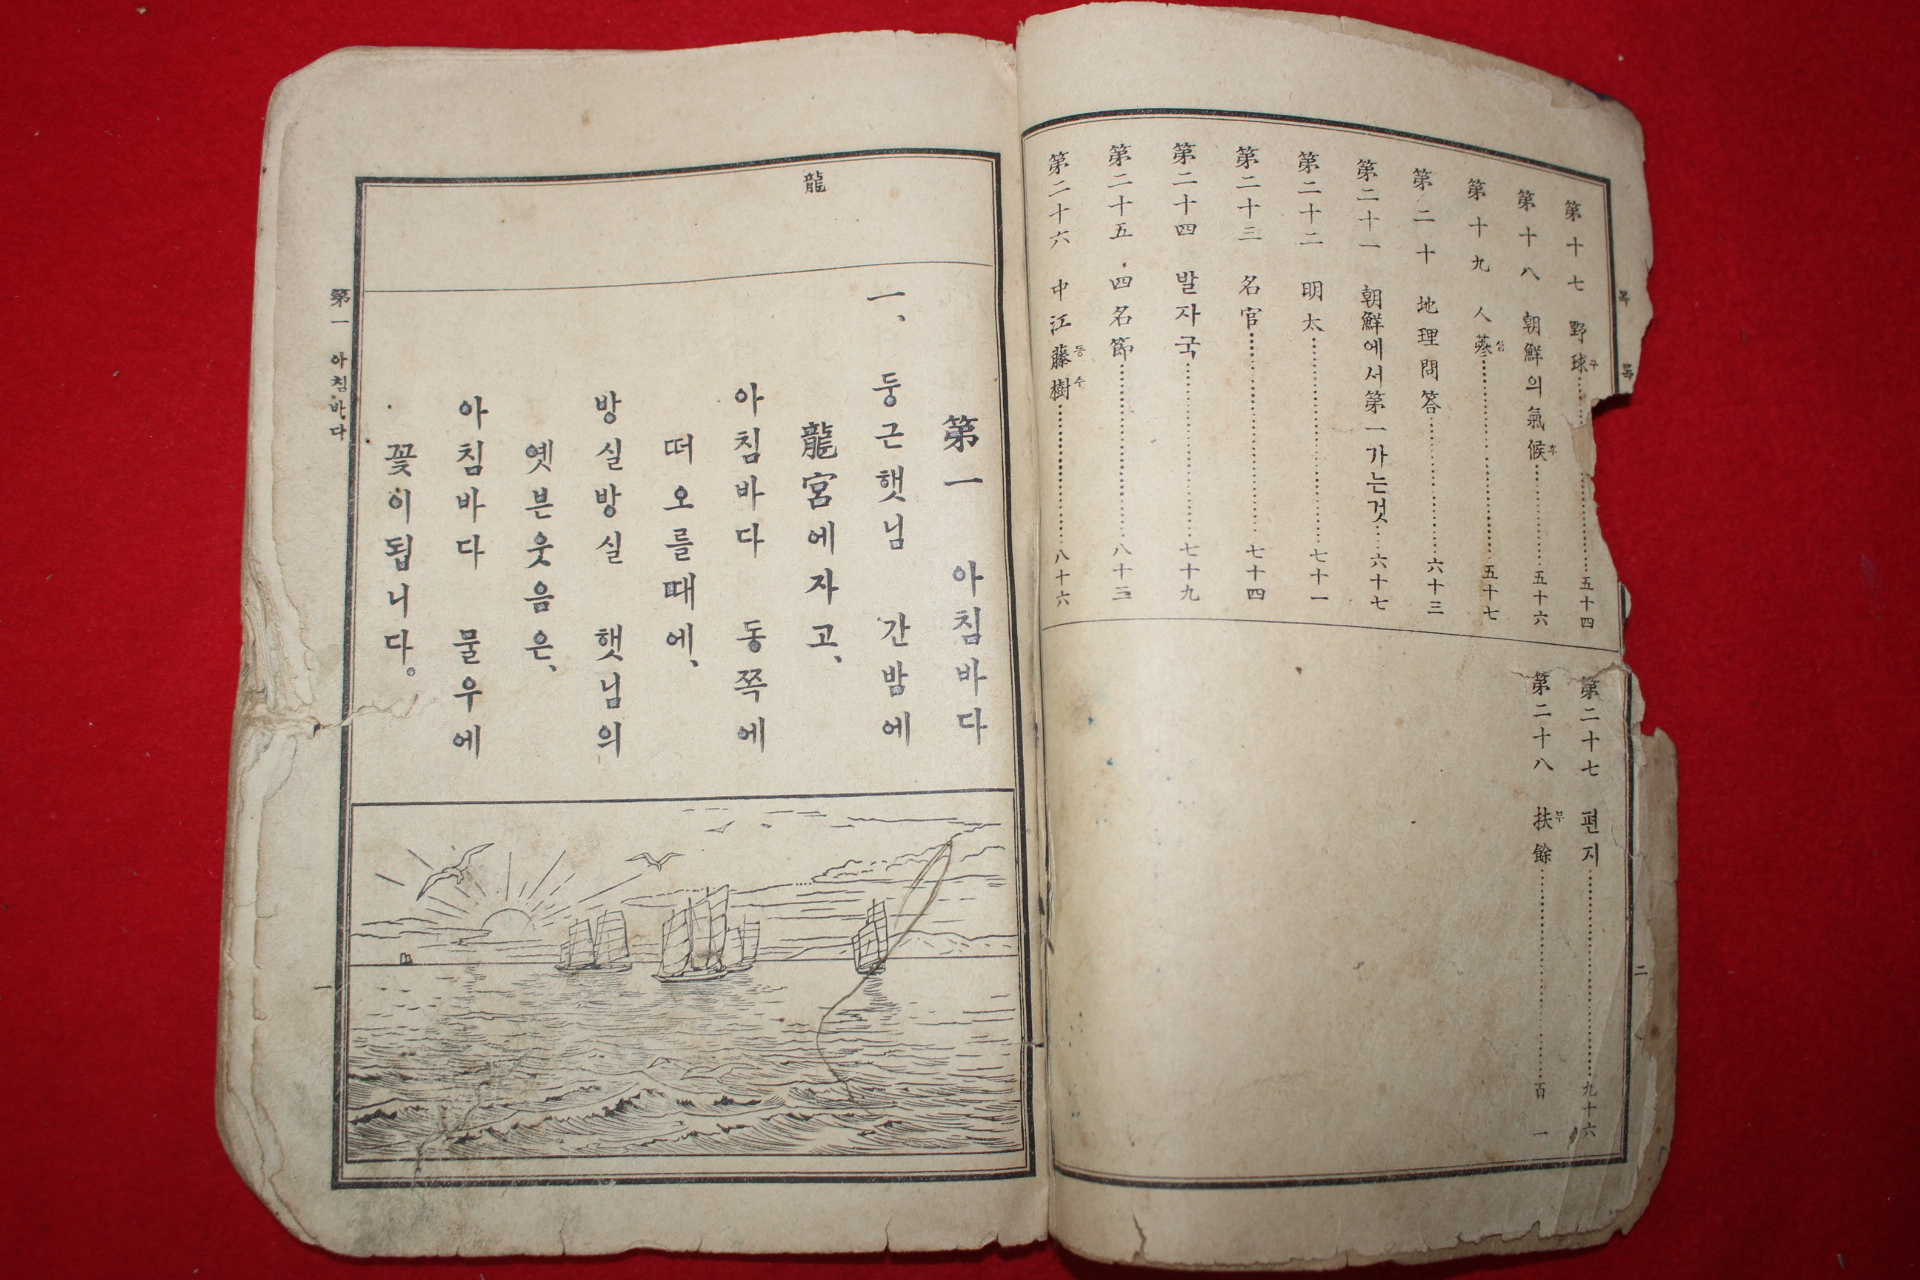 목 록
第十七 野球구 五十四
第十八 朝鮮의氣候후 五十六
第十九 人蔘삼 五十七
第二十 地理問答 六十三
第二十一 朝鮮에서第一가는것 六十七
第二十二 明太 七十一
第二十三 名官 七十四
第二十四 발자국 七十九
第二十五 四名節 八十三
第二十六 中江藤樹등수 八十六
第二十七 편지 九十六
第二十八 扶부餘 百一
二
龍
第一 아침바다
一、둥근햇님 간밤에
龍宮에자고、
아침바다 동쪽에
떠오를때에、
방실방실 햇님의
옛븐웃음은、
아침바다 물우에
꽃이됩니다。
第一 아침바다
一